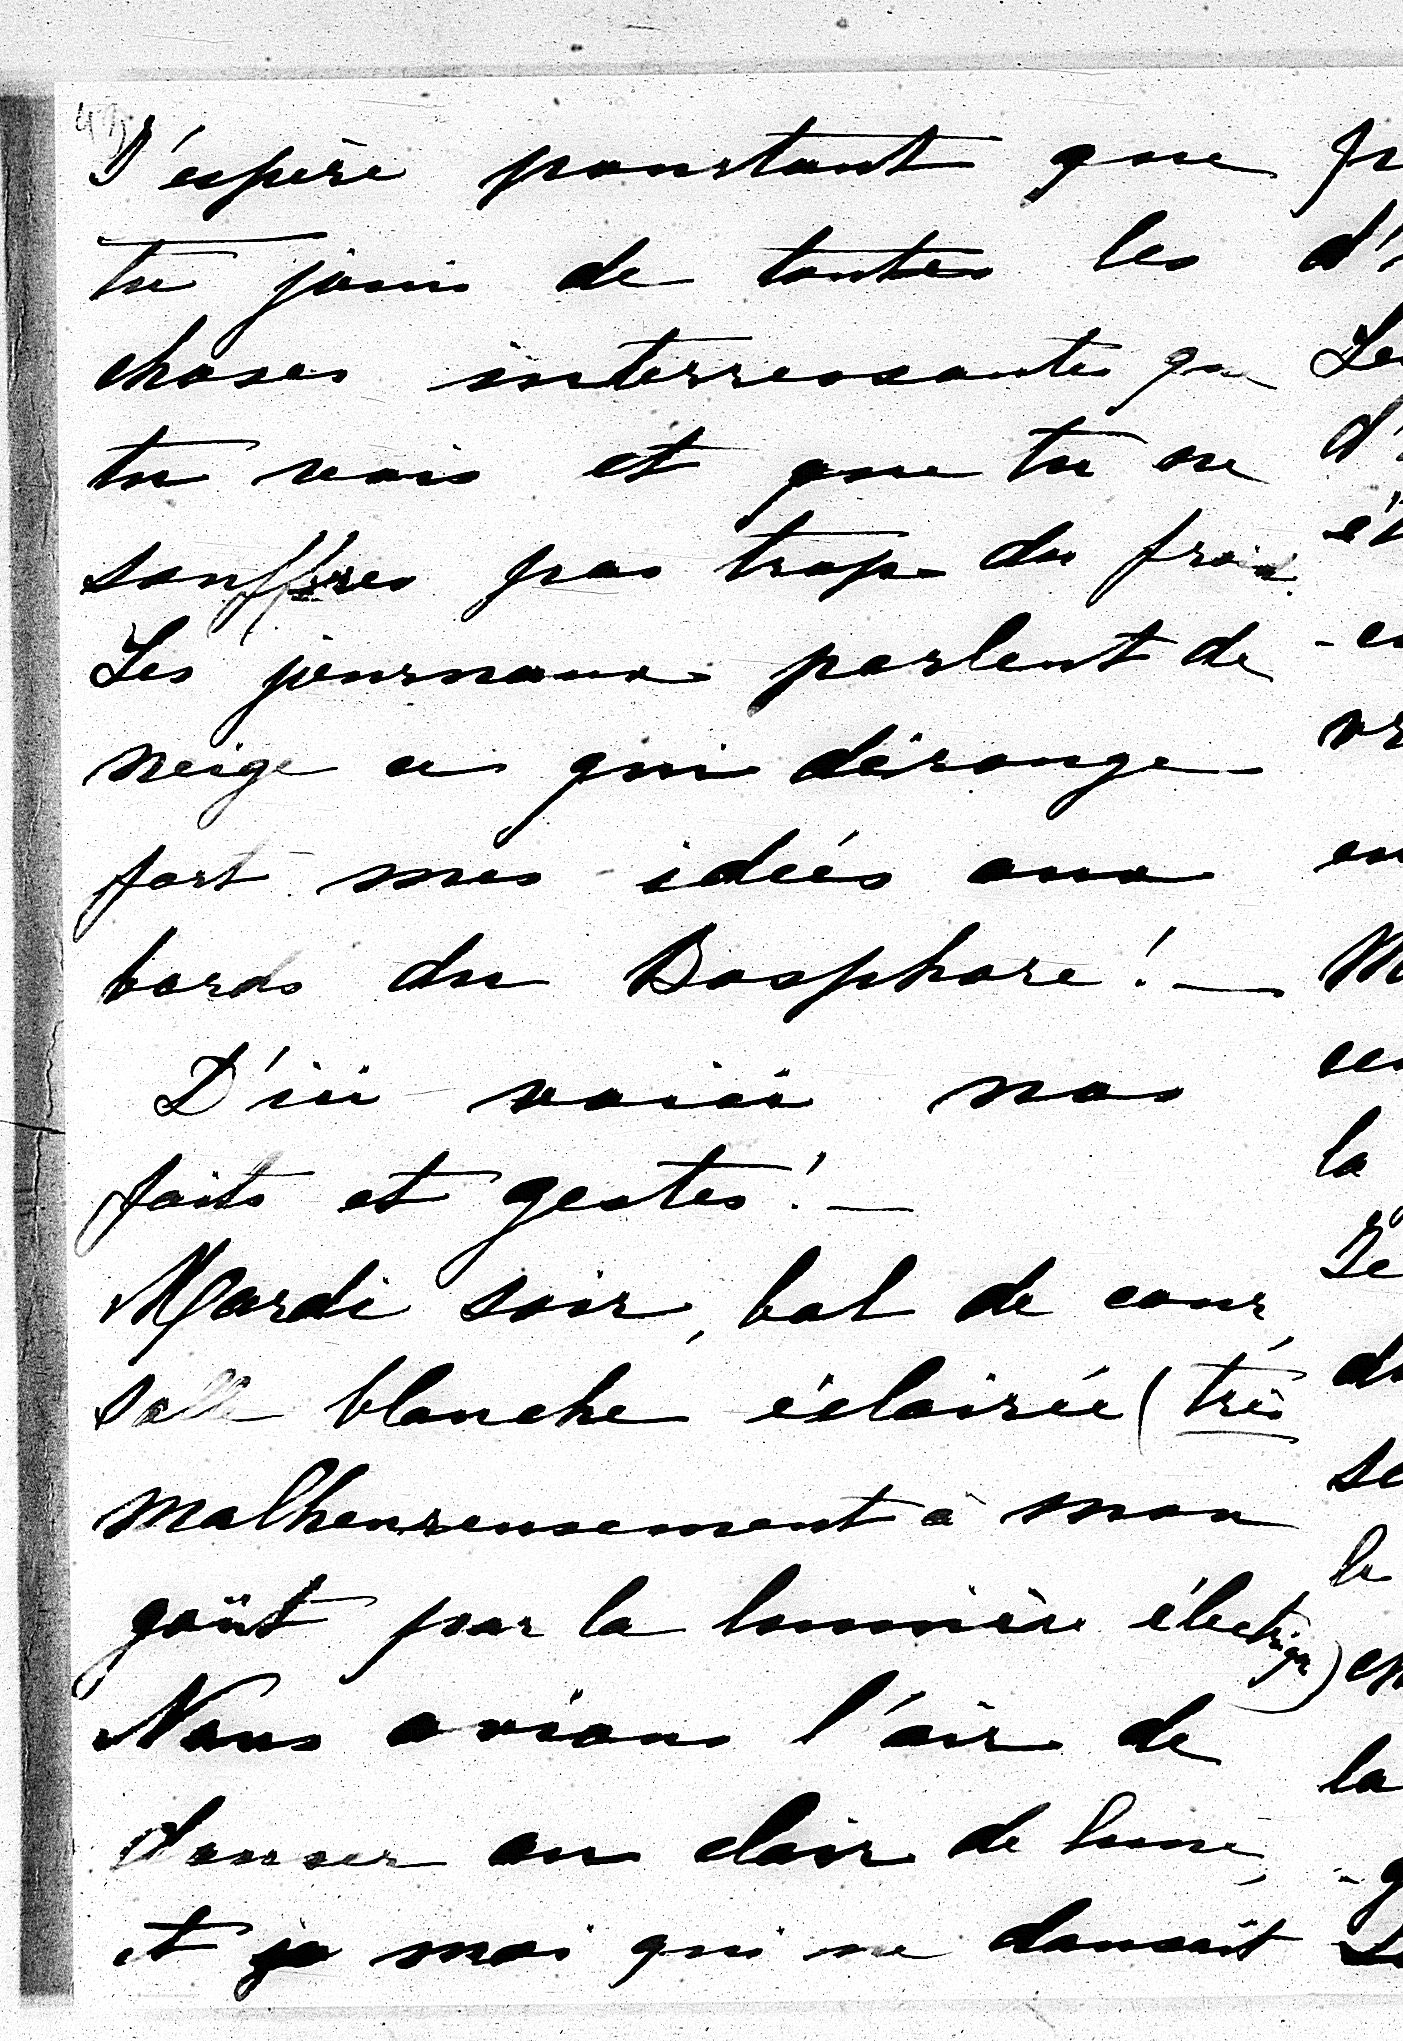 J'espère pourtant que
tu jouis de toutes les
choses interressantes que
tu vois et que tu ne
souffres pas trop du froid.
Les journaux parlent de
neige ce qui dérange
fort mes idées aux
bords du Bosphore! —
D'ici voici nos
faits et gestes! —
Mardi soir, bal de cour,
salle blanche éclairée (très
malheureusement à mon
goût par la lumière électrique)
Nous avions l'air de
danser au clair de lune,
et je moi qui ne dansait
d'
la
la